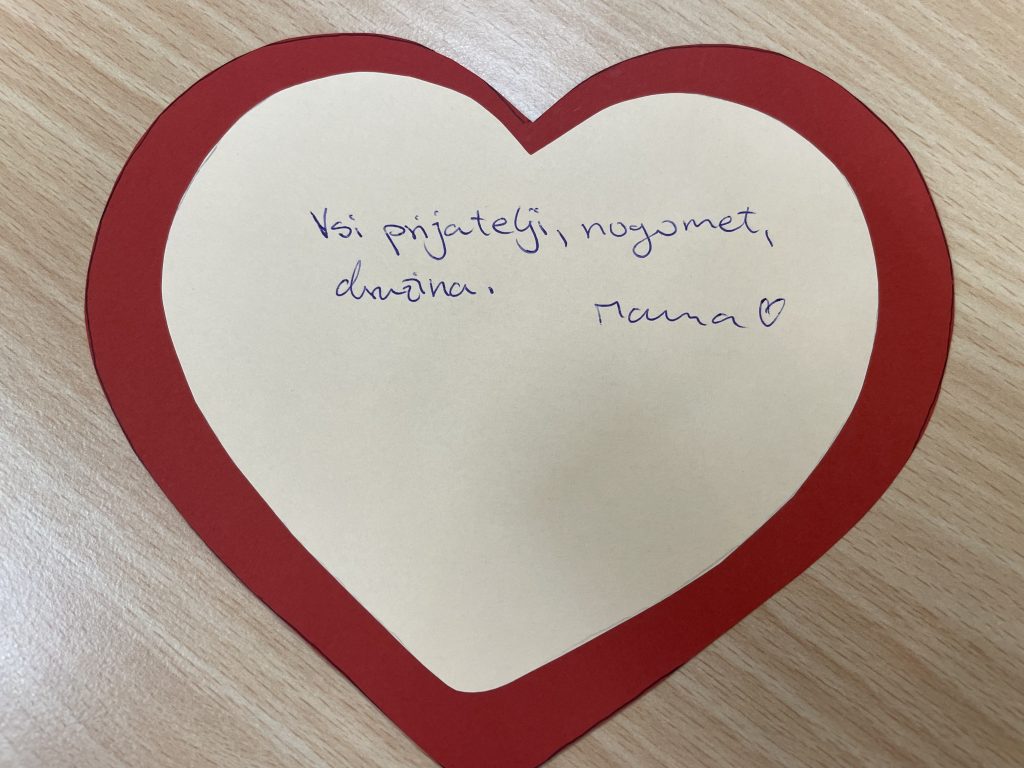 Vsi prijatelji, nogomet,
družina.
Mama ♡